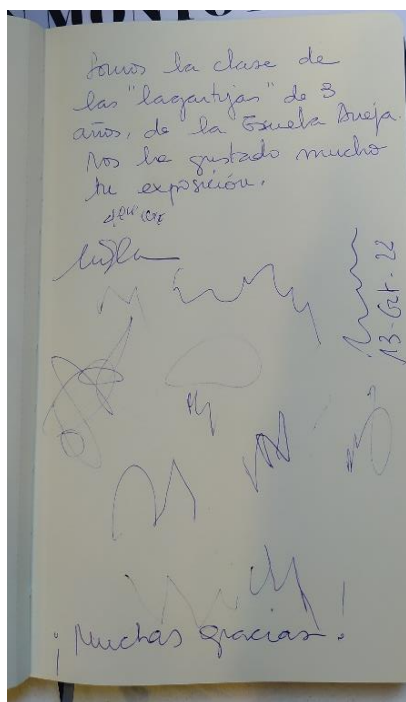 MONTO
Somos la clase de
las "lagartijas" de 3
años, de la Escuela Aneja.
Nos ha gustado mucho
tu exposición.
13-Oct-22
¡Muchas gracias!